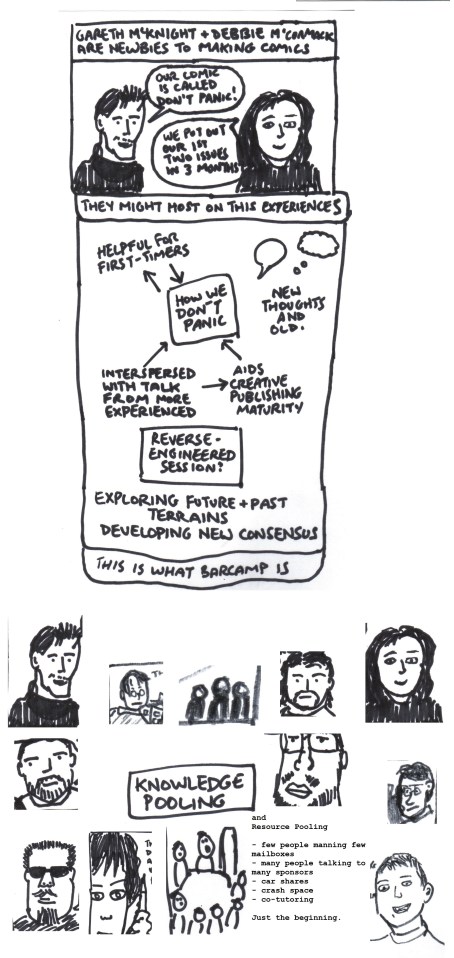 GARETH McKNIGHT + DEBBIE McCORMACK
ARE NEWBIES TO MAKING COMICS
OUR COMIC
IS CALLED
DON'T PANIC!
WE PUT OUT
OUR 1ST
TWO ISSUES
IN 3 MONTHS
THEY MIGHT MOST ON THIS EXPERIENCES
HELPFUL FOR
FIRST-TIMERS
HOW WE
DON'T
PANIC
NEW
THOUGHTS
AND
OLD.
INTERSPERSED
WITH TALK
FROM MORE
EXPERIENCED
AIDS
CREATIVE
PUBLISHING
MATURITY
REVERSE-
ENGINEERED
SESSION?
EXPLORING FUTURE + PAST
TERRAINS
DEVELOPING NEW CONSENSUS
THIS IS WHAT BARCAMP IS
KNOWLEDGE
POOLING
and
Resource Pooling
- few people manning few
mailboxes
- many people talking to
many sponsors
- car shares
- crash space
- co-tutoring
Just the beginning.